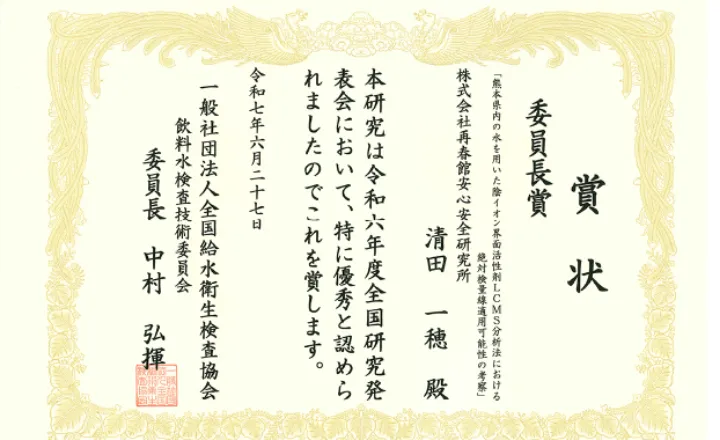 賞状
委員長賞
「熊本県内の水を用いた陰イオン界面活性剤LCMS分析法における
絶対検量線適用可能性の考察」
株式会社再春館安心安全研究所
清田 一穂 殿
本研究は令和六年度全国研究発
表会において、特に優秀と認めら
れましたのでこれを賞します。
令和七年六月二十七日
一般社団法人全国給水衛生検査協会
飲料水検査技術委員会
委員長 中村 弘揮